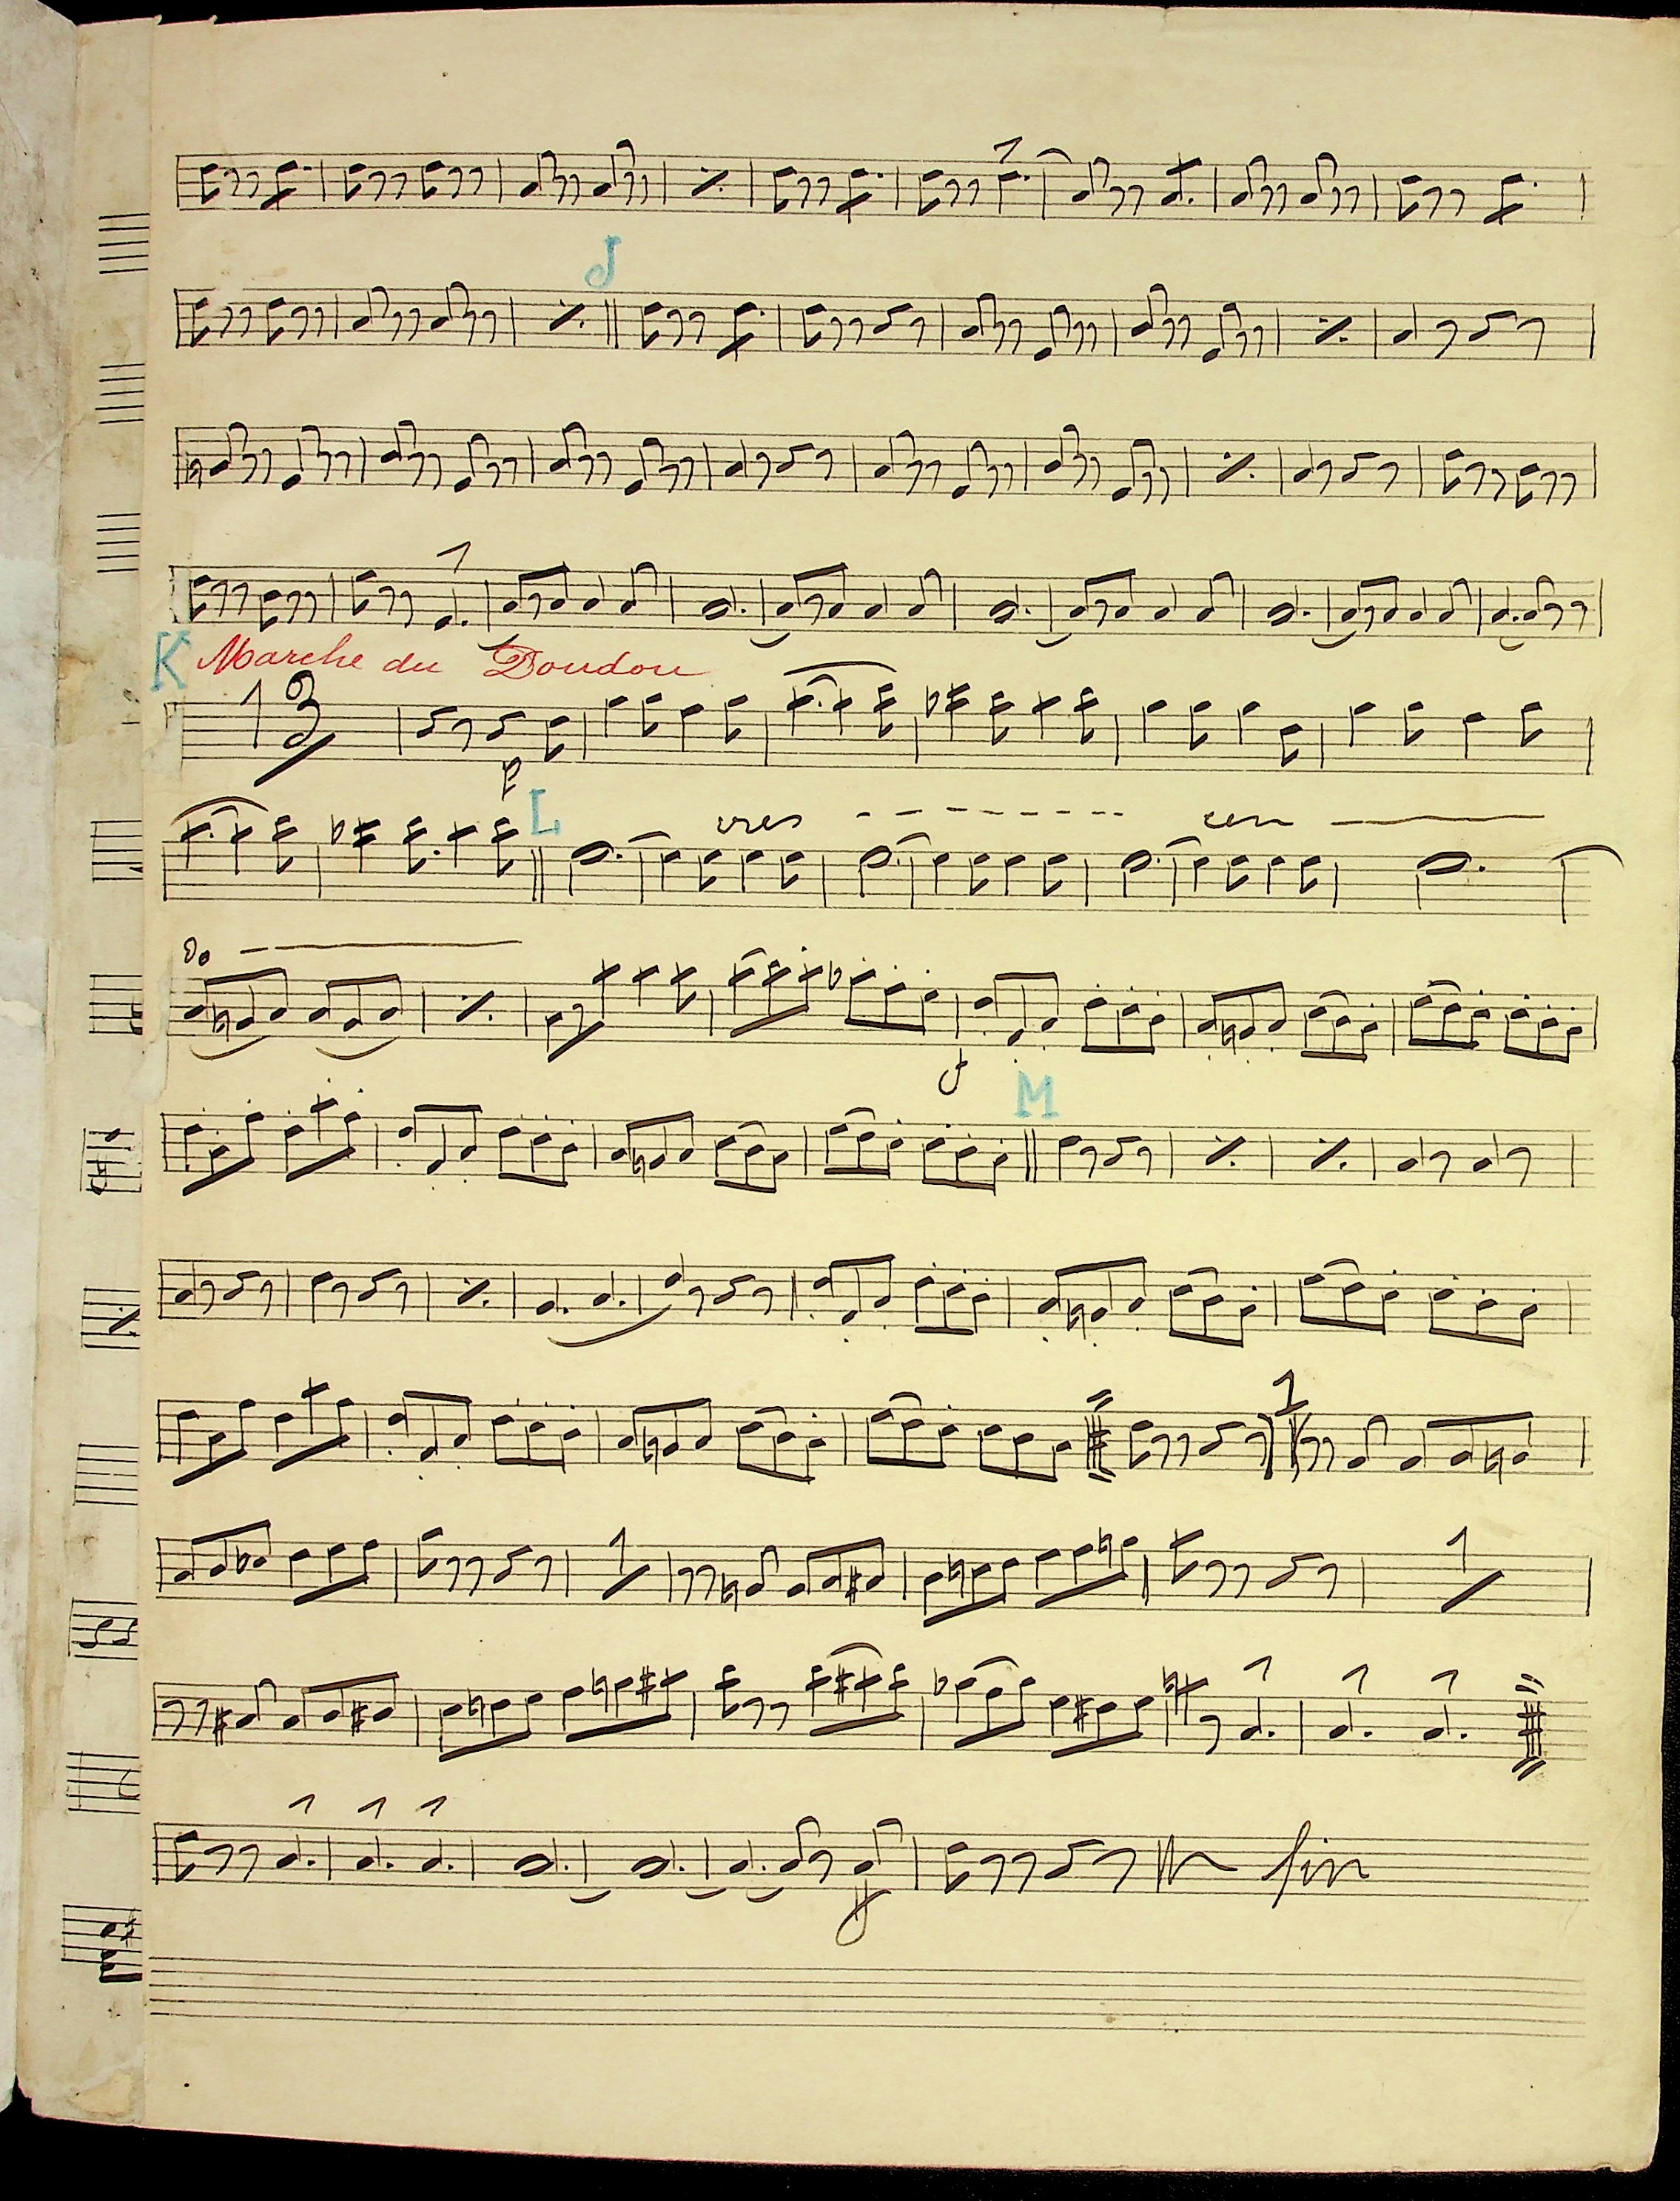 J
K Marche du Doudou
13
p
L cres - - - - - - - cen
do
f
M
1
1
1
f
fin